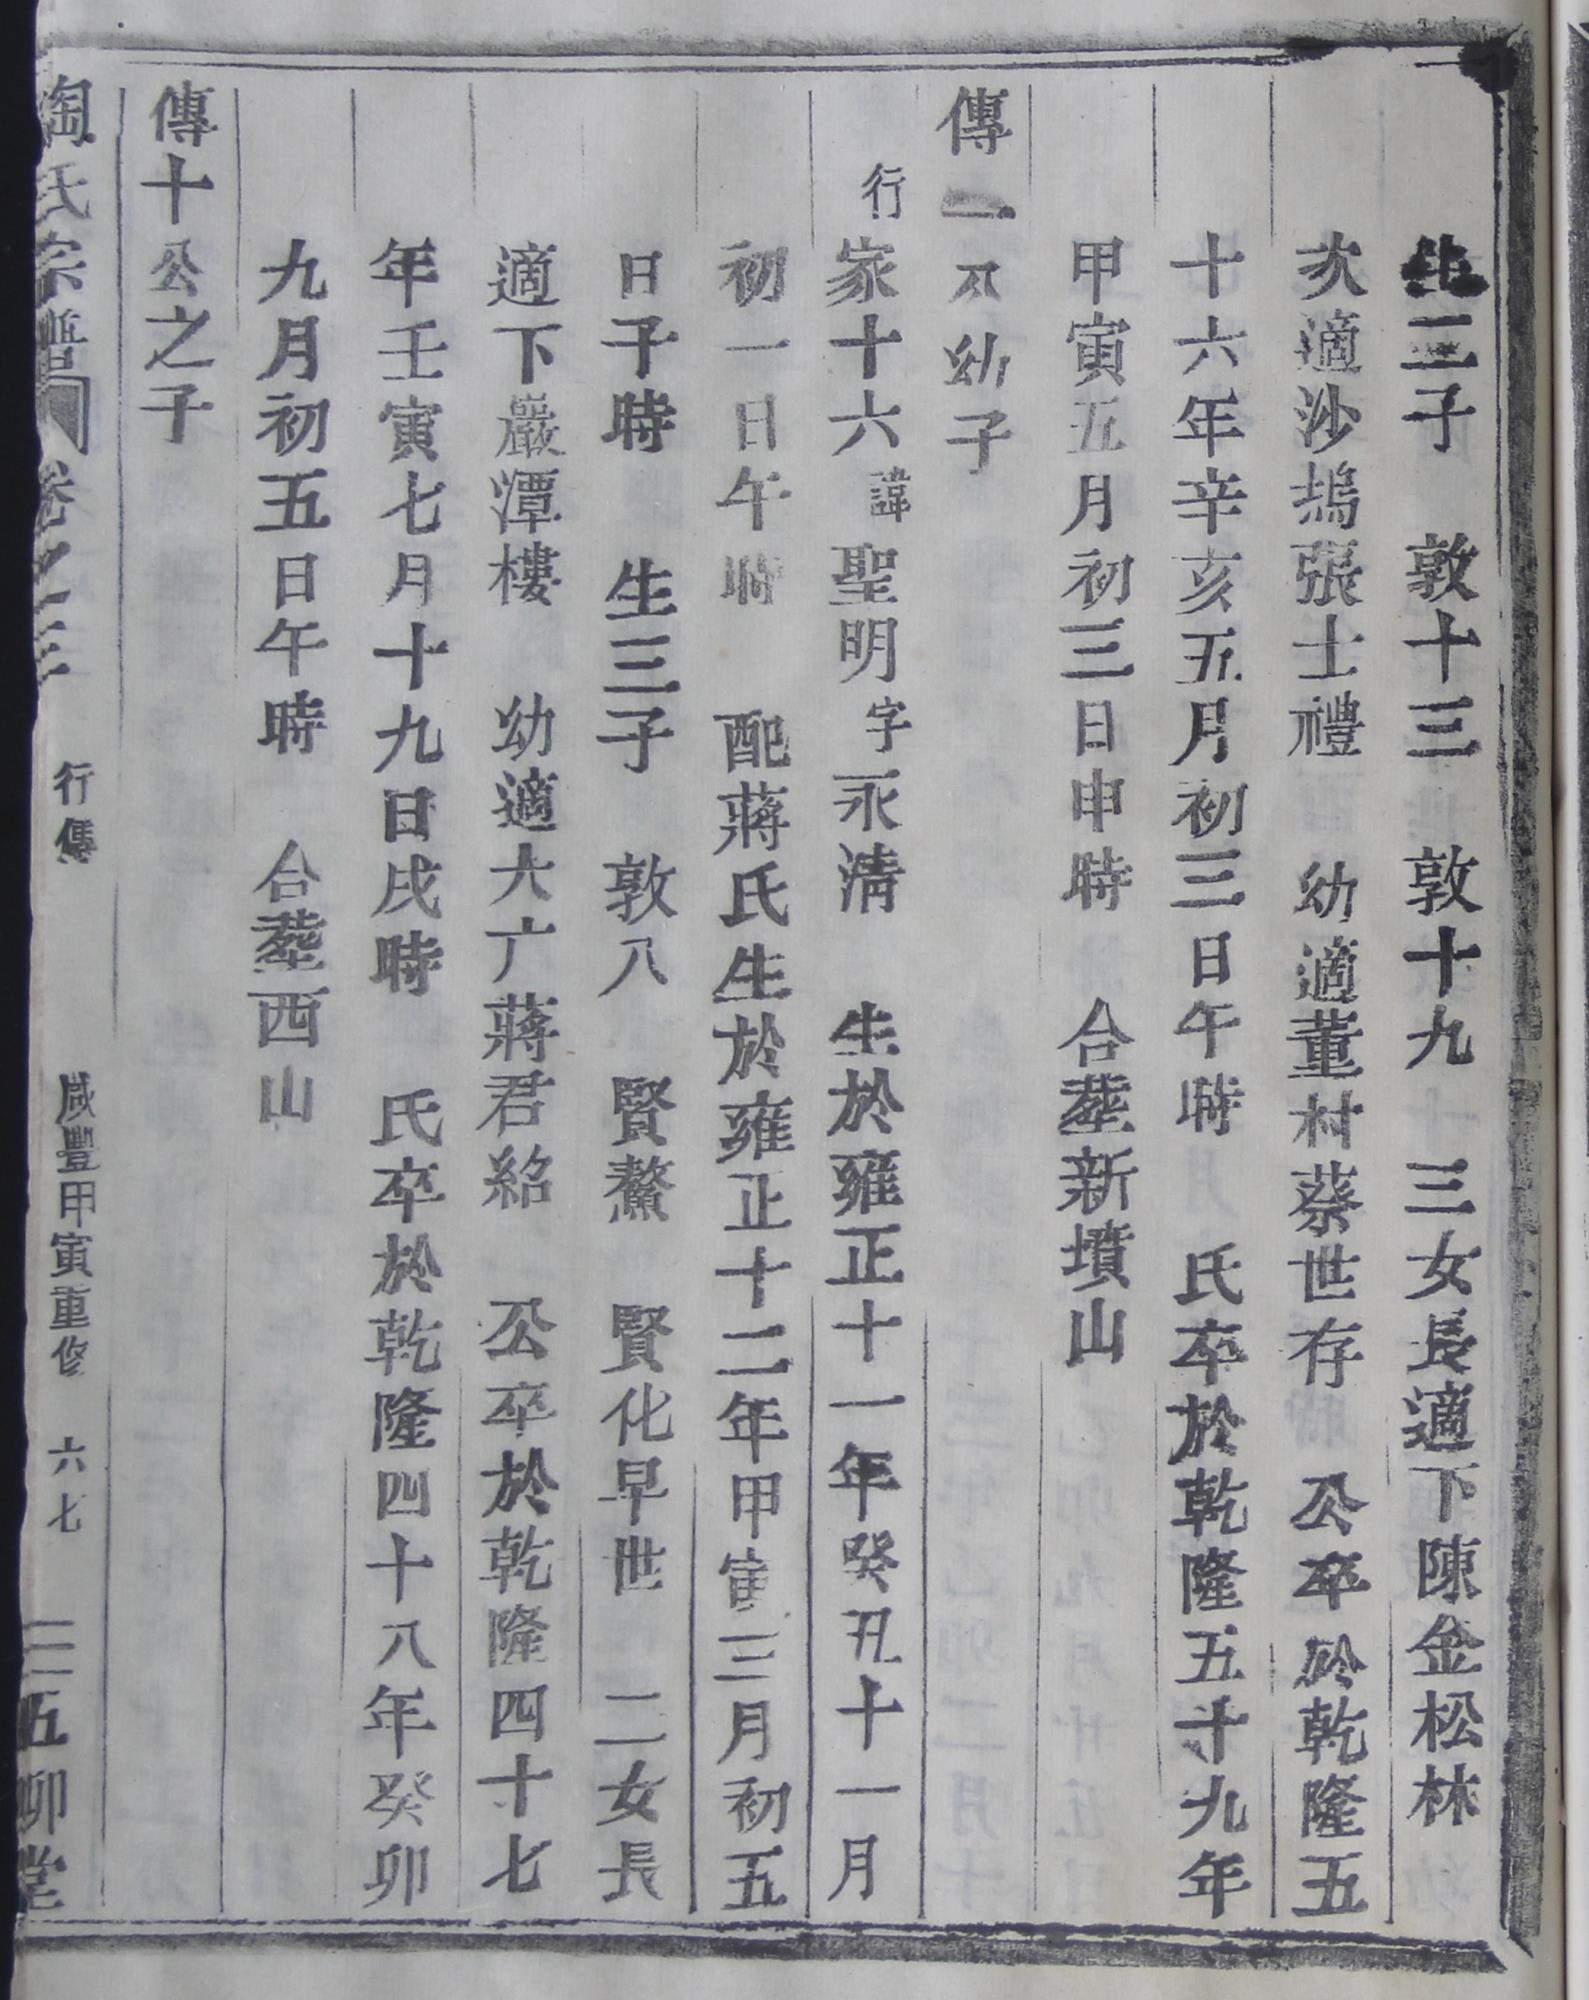 生三子　敦十三　敦十九　三女長適下陳金松林
次適沙塢張士禮　幼適董村蔡世存　公卒於乾隆五
十六年辛亥五月初三日午時　氏卒於乾隆五十九年
甲寅五月初三日申時　合葬新墳山
傳一公幼子
行家十六諱聖明字永淸　生於雍正十一年癸丑十一月
初一日午時　配蔣氏生於雍正十二年甲寅三月初五
日子時　生三子　敦八　賢鰲　賢化早世　二女長
適下巖潭樓　幼適大广蔣君綌　公卒於乾隆四十七
年壬寅七月十九日戌時　氏卒於乾隆四十八年癸卯
九月初五日午時　合葬西山
傳十公之子
陶氏宗譜　卷之三　行傳　咸豐甲寅重修　六七　五柳堂